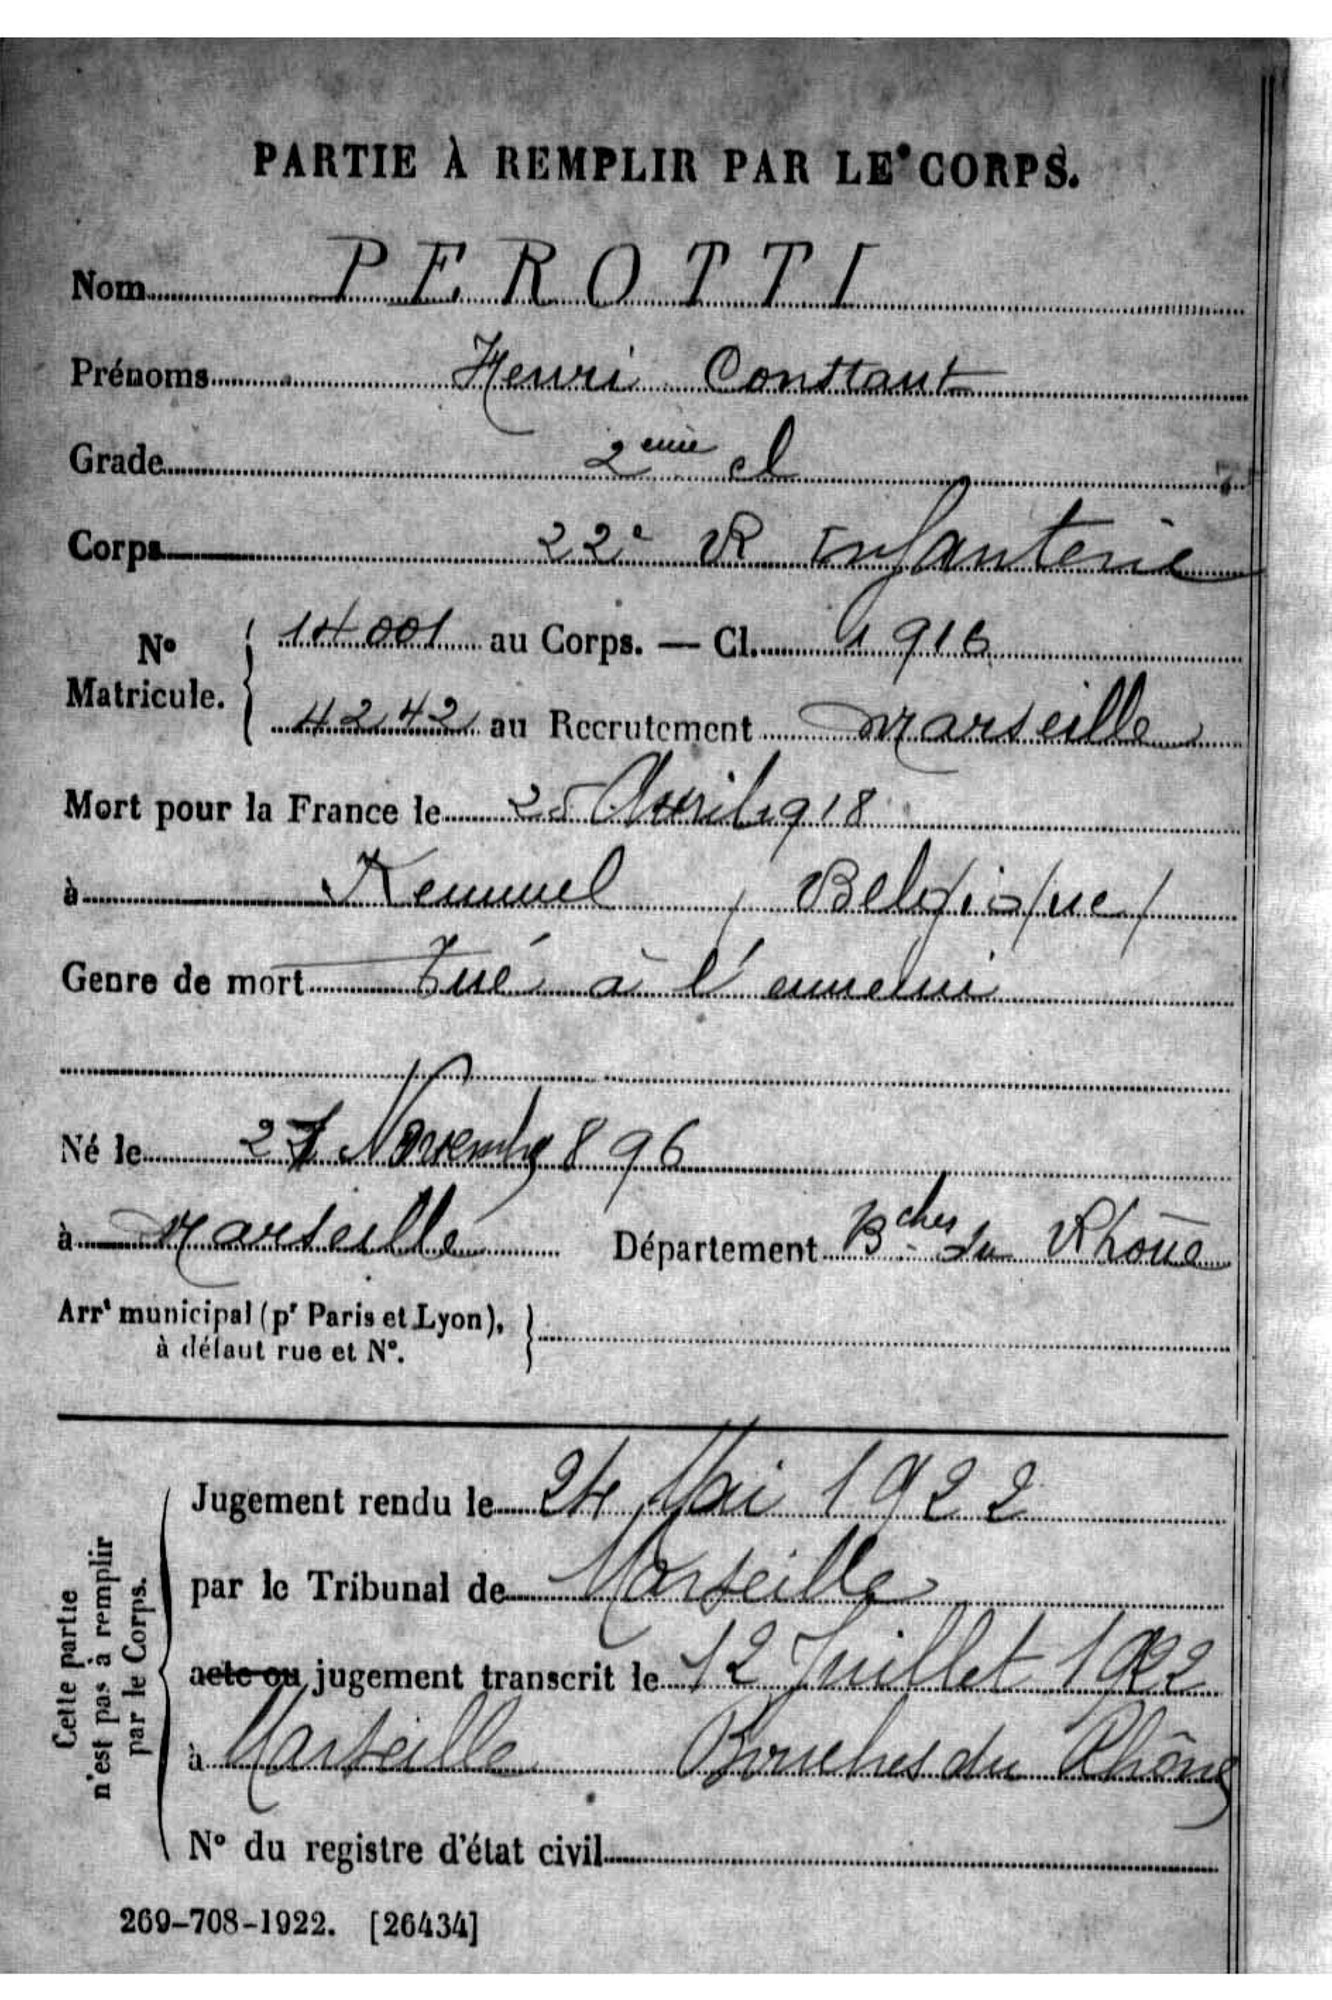 PARTIE À REMPLIR PAR LE CORPS.
Nom PEROTTI
Prénoms Henri Constant
Grade 2eme cl
Corps 22e R Infanterie
N° Matricule. { 14001 au Corps. — Cl. 1916
4242 au Recrutement Marseille
Mort pour la France le 25 Avril 1918
à Kemmel (Belgique)
Genre de mort Tué à l'ennemi
Né le 27 Novembre 1896
à Marseille Département Bches du Rhône
Arrt municipal (pr Paris et Lyon), }
à défaut rue et N°.
Cette partie n'est pas à remplir par le Corps.
Jugement rendu le 24 Mai 1922
par le Tribunal de Marseille
acte ou jugement transcrit le 12 Juillet 1922
à Marseille Bouches du Rhône
N° du registre d'état civil
269-708-1922. [26434]